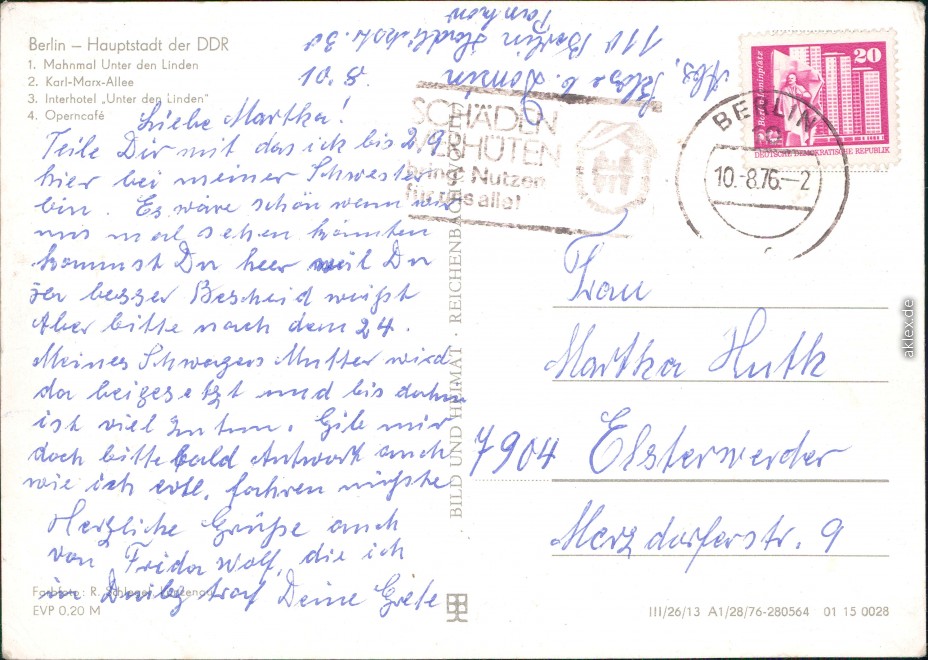 Berlin – Hauptstadt der DDR
1. Mahnmal Unter den Linden
2. Karl-Marx-Allee
3. Interhotel „Unter den Linden"
4. Operncafé
Abs. b.
110 Berlin
Pankow
10. 8.
Liebe Martka!
Teile Dir mit das ich bis 2,9
hier bei meiner Schwester
bin. Es wäre schön wenn wir
uns mal sehen könnten
kommst Du heer weil Du
ja besser Bescheid weißt
Aber bitte nach dem 24.
Meines Schwagers Mutter wird
da beigesetzt und bis dahin
ist viel zu tun. Gib mir
doch bitte bald Antwort auch
wie ich evtl. fahren müßte
Herzliche Grüße auch
von Frida Wolf, die ich
in traf Deine Grete
SCHÄDEN
VERHÜTEN
bringt Nutzen
für uns alle!
BERLIN
10.-8.76.–2
20
Berlin Leninplatz
DEUTSCHE DEMOKRATISCHE REPUBLIK
Frau
Martka Huth
7904 Elsterwerder
Merzdorferstr. 9
BILD UND HEIMAT · REICHENBACH (VOGTL)
Farbfoto: R.
EVP 0,20 M
III/26/13 A1/28/76-280564 01 15 0028
aklex.de